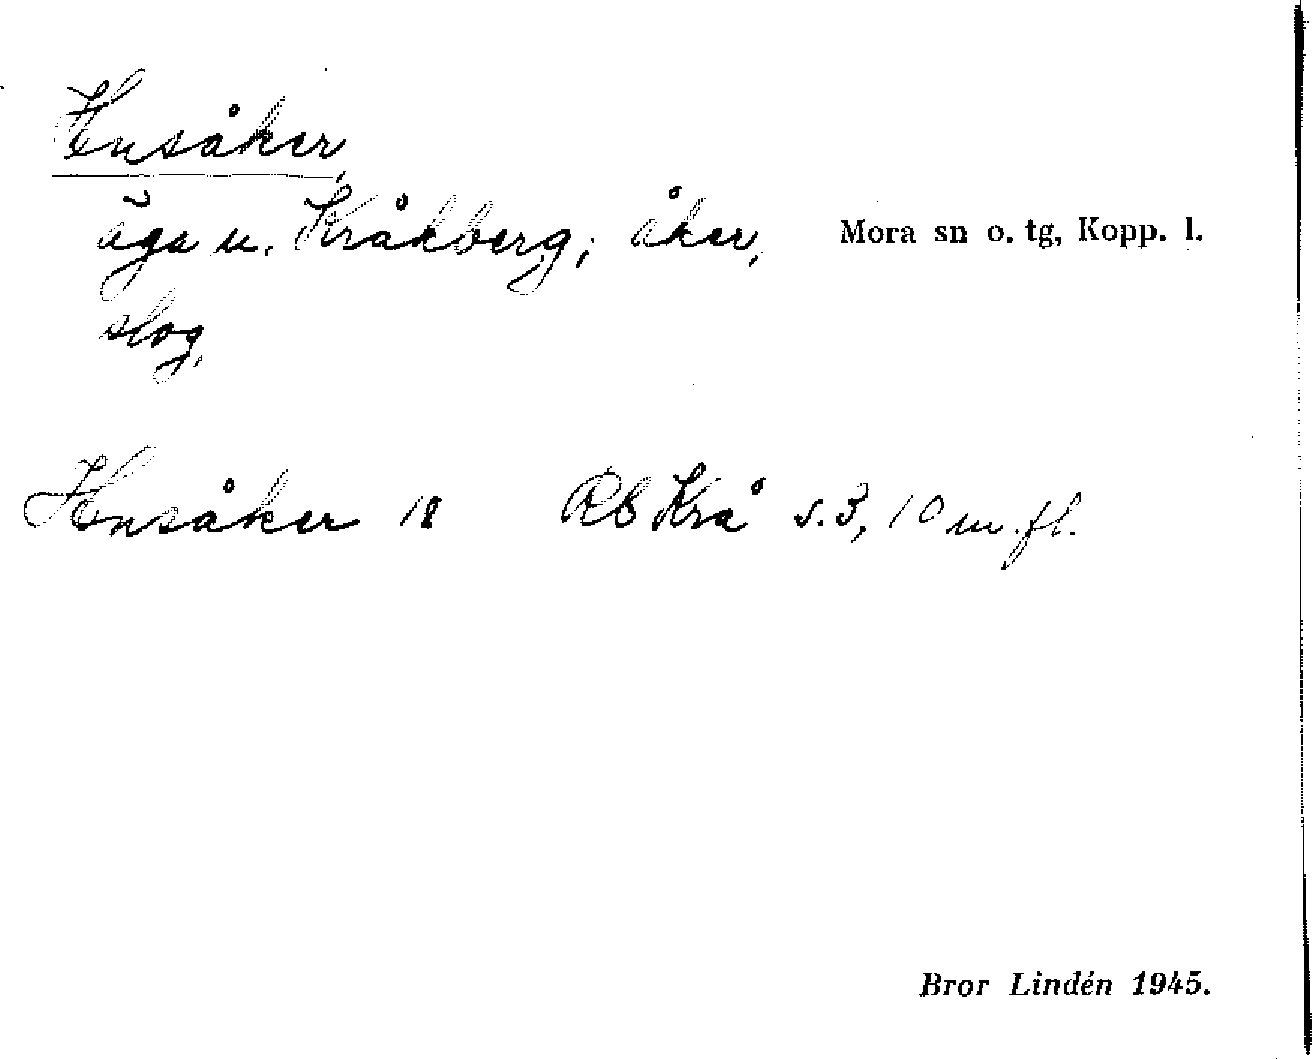 Ensåker,
äga u. Kråkberg; åker, Mora sn o. tg, Kopp. l.
slog,
Ensåker 18 RB Krå s. 3, 10 m. fl.
Bror Lindén 1945.